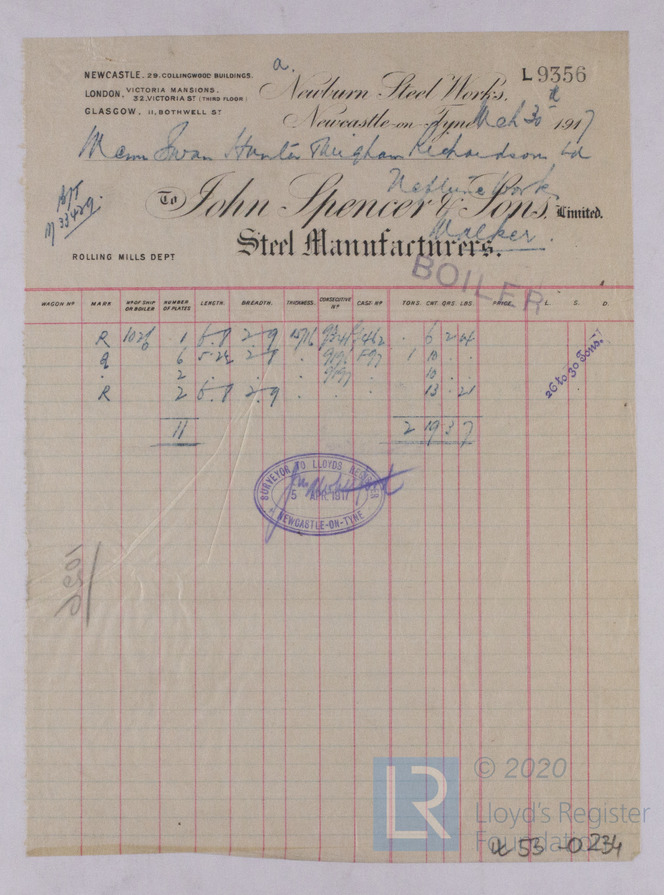 NEWCASTLE. 29. COLLINGWOOD BUILDINGS.
LONDON. VICTORIA MANSIONS. 32. VICTORIA ST (THIRD FLOOR)
GLASGOW, 11, BOTHWELL ST
a.
L 9356
Newburn Steel Works,
Newcastle-on-Tyne Mch 30th 1917
Swan Hunter Wigham Richardson Ld
Neptune Work
Walker.
To John Spencer & Sons, Limited.
Steel Manufacturers.
ROLLING MILLS DEPT
M 33429.
BOILER
WAGON No MARK No OF SHIP OR BOILER NUMBER OF PLATES LENGTH. BREADTH. THICKNESS. CONSECUTIVE No CASE No TONS. CWT. QRS. LBS. PRICE L. S. D.
R 1026 1 6-8 2-9 15/16 . 6 2 14
6 2-9 . 1 10 . .
. 2 . . . 10 . .
R 2 6-8 2-9 . . . 13 . 21
11 2 19 3 7
26 to 30 Tons.
SURVEYOR TO LLOYDS REGISTER
5 APR. 1917
NEWCASTLE-ON-TYNE
LR
© 2020
Lloyd's Register
Foundation
53 - 0234